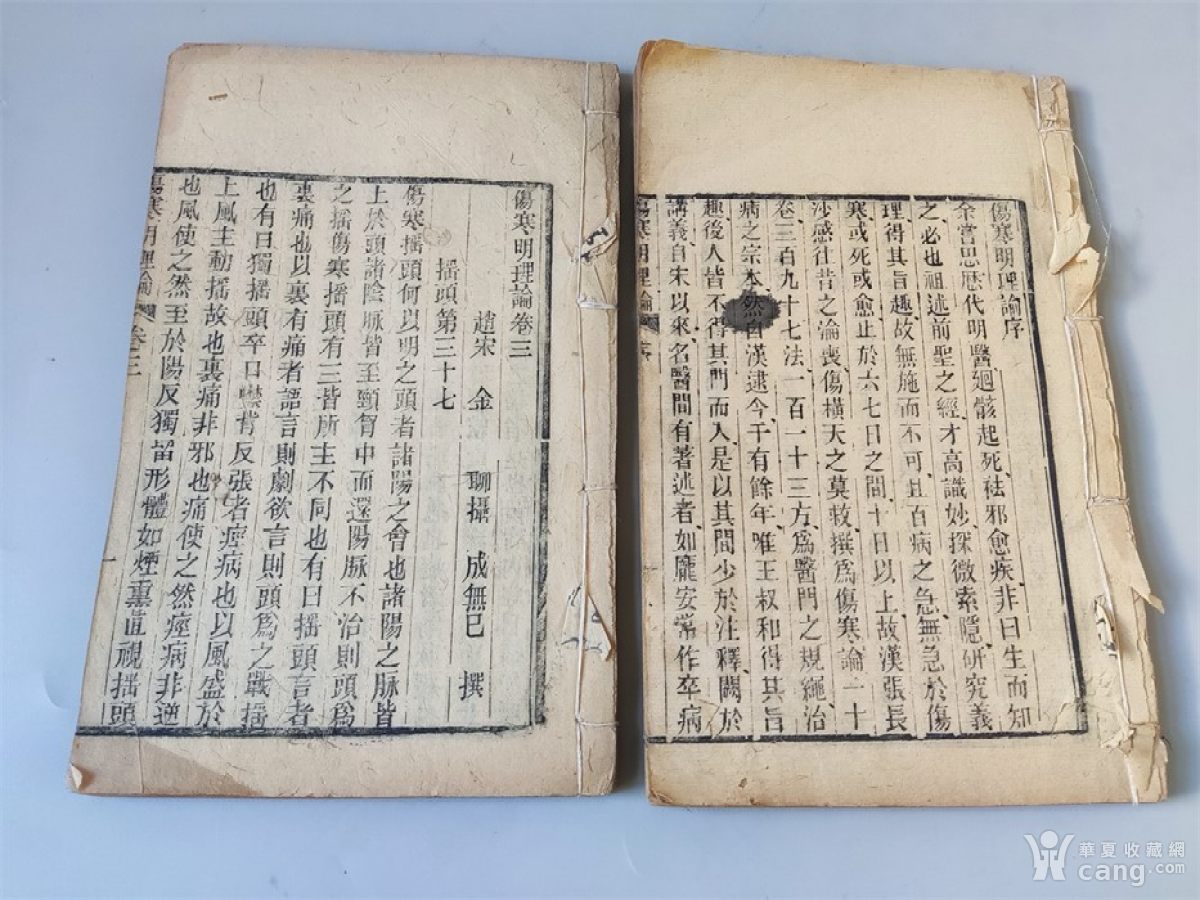 傷寒明理論序
余嘗思歷代明醫廻骸起死祛邪愈疾非曰生而知
之必也祖述前聖之經才高識妙探微索隱研究義
理得其旨趣故無施而不可且百病之急無急於傷
寒或死或愈止於六七日之間十日以上故漢張長
沙感往昔之淪喪傷橫夭之莫救撰爲傷寒論一十
卷三百九十七法一百一十三方爲醫門之規繩治
病之宗本然自漢逮今千有餘年唯王叔和得其旨
趣後人皆不得其門而入是以其間少於注釋闕於
講義自宋以來名醫間有著述者如龐安常作卒病
傷寒明理論 序
傷寒明理論卷三
趙宋 金 聊攝 成無已 撰
搖頭第三十七
傷寒搖頭何以明之頭者諸陽之會也諸陽之脉皆
上於頭諸陰脉皆至頸胷中而還陽脉不治則頭爲
之搖傷寒搖頭有三皆所主不同也有曰搖頭言者
裏痛也以裏有痛者語言則劇欲言則頭爲之戰搖
也有曰獨搖頭卒口噤背反張者痙病也以風盛於
上風主動搖故也裏痛非邪也痛使之然痙病非逆
也風使之然至於陽反獨留形體如煙熏直視搖頭
傷寒明理論 卷三 一
華夏收藏網
cang.com